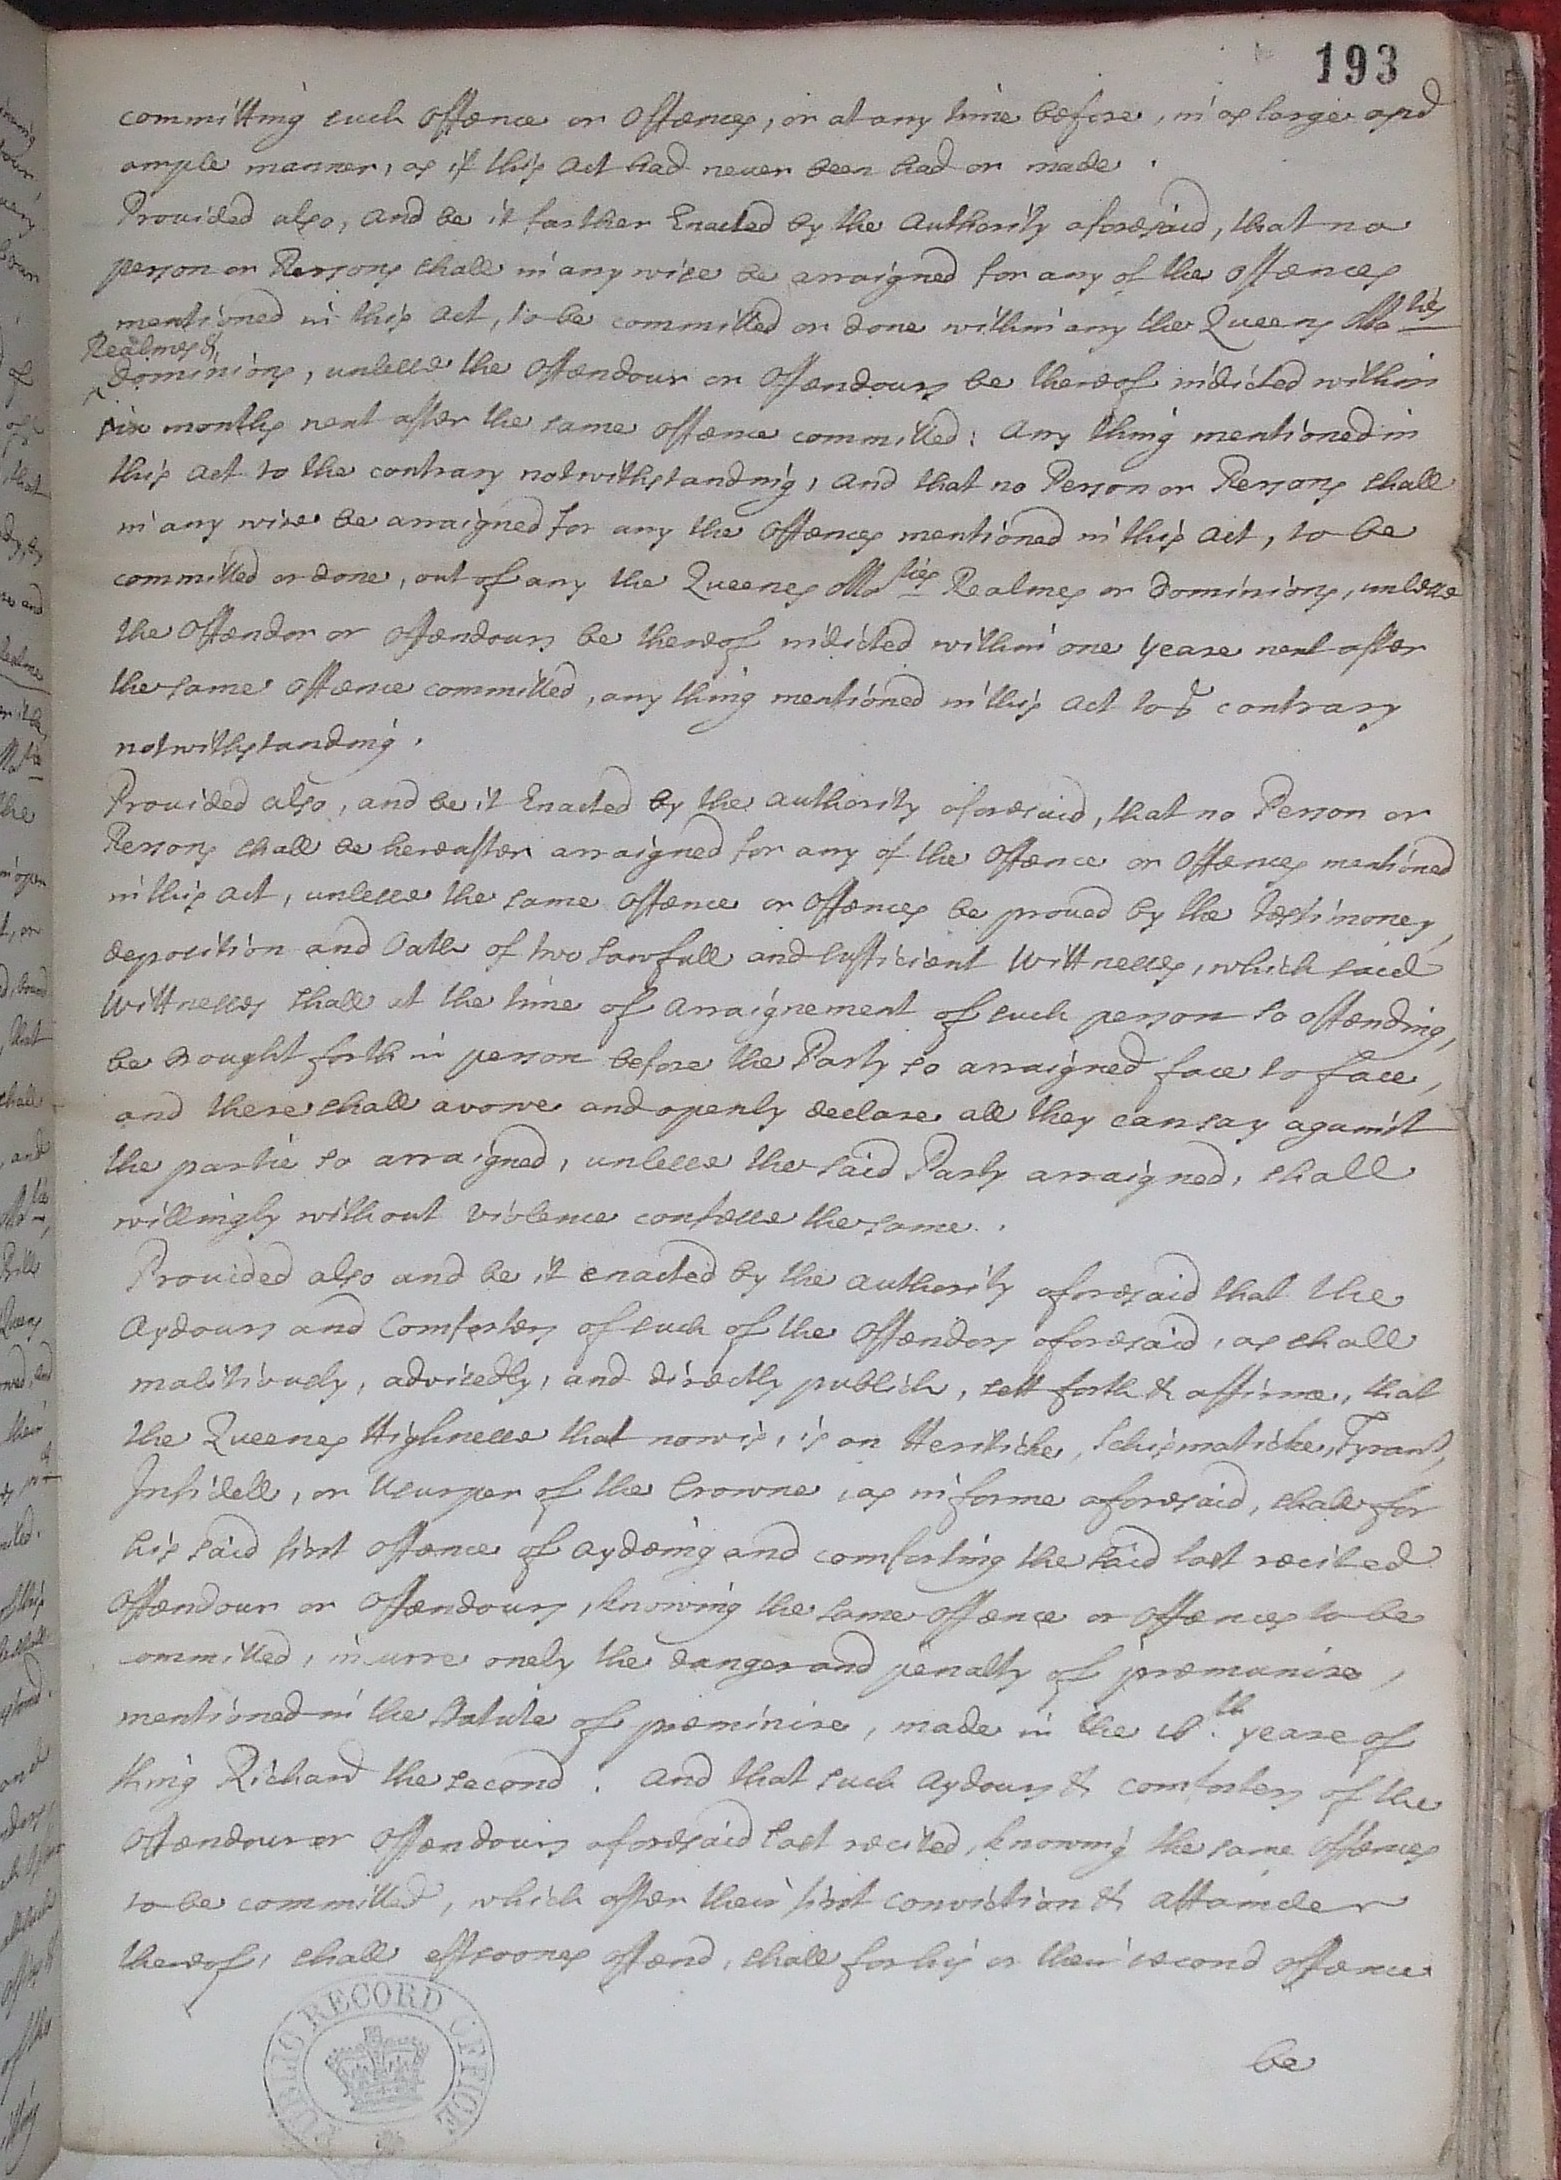 193
committing such Offence or Offences, or at any time before, in as large and
ample manner, as if this Act had never been had or made.
Provided also, and be it farther Enacted by the Authority aforesaid, that no
person or Persons shall in any wise be arraigned for any of the Offences
mentioned in this Act, to be committed or done within any the Queens Ma.ties
Realmes &
Dominions, unlesse the Offendour or Offendours be thereof indicted within
six months next after the same offence committed: Any thing mentioned in
this Act to the contrary notwithstanding, And that no Person or Persons shall
in any wise be arraigned for any the Offences mentioned in this Act, to be
committed or done, out of any the Queenes Ma.ties Realmes or Dominions, unlesse
the Offendor or offendours be thereof indicted within one yeare next after
the same Offence committed, any thing mentioned in this Act to ye contrary
notwithstanding.
Provided also, and be it Enacted by the Authority aforesaid, that no Person or
Persons shall be hereafter arraigned for any of the Offence or Offences mentioned
in this Act, unlesse the same Offence or Offences be proved by the Testimoney,
deposition and Oath of two Lawfull and sufficient Wittnesses, which said
Wittnesses shall at the time of Arraignement of such person so offending,
be brought forth in person before the Party so arraigned face to face,
and there shall avowe and openly declare all they can say against
the partie so arraigned, unlesse the said Party arraigned, shall
willingly without violence confesse the same.
Provided also and be it enacted by the Authority aforesaid that the
Aydours and Comforters of such of the Offendors aforesaid, as shall
malitiously, advisedly, and directly publish, sett forth & affirme, that
the Queenes Highnesse that now is, is an Heriticke, Schismaticke, Tyrant,
Infidell, or Usurper of the Crowne, as in forme aforesaid, shall for
his said first Offence of aydeing and comforting the said last recited
Offendour or Offendours, knowing the same offence or offences to be
committed, incurre onely the danger and penalty of præmunire,
mentioned in the Statute of preminire, made in the 16.th yeare of
King Richard the second. And that such Aydours & comforters of the
Offendour or Offendours aforesaid last recited, knowing the same Offences
to be committed, which after their first conviction & Attainder
thereof, shall eftsoones offend, shall for his or their second offence
be
PUBLIC RECORD OFFICE